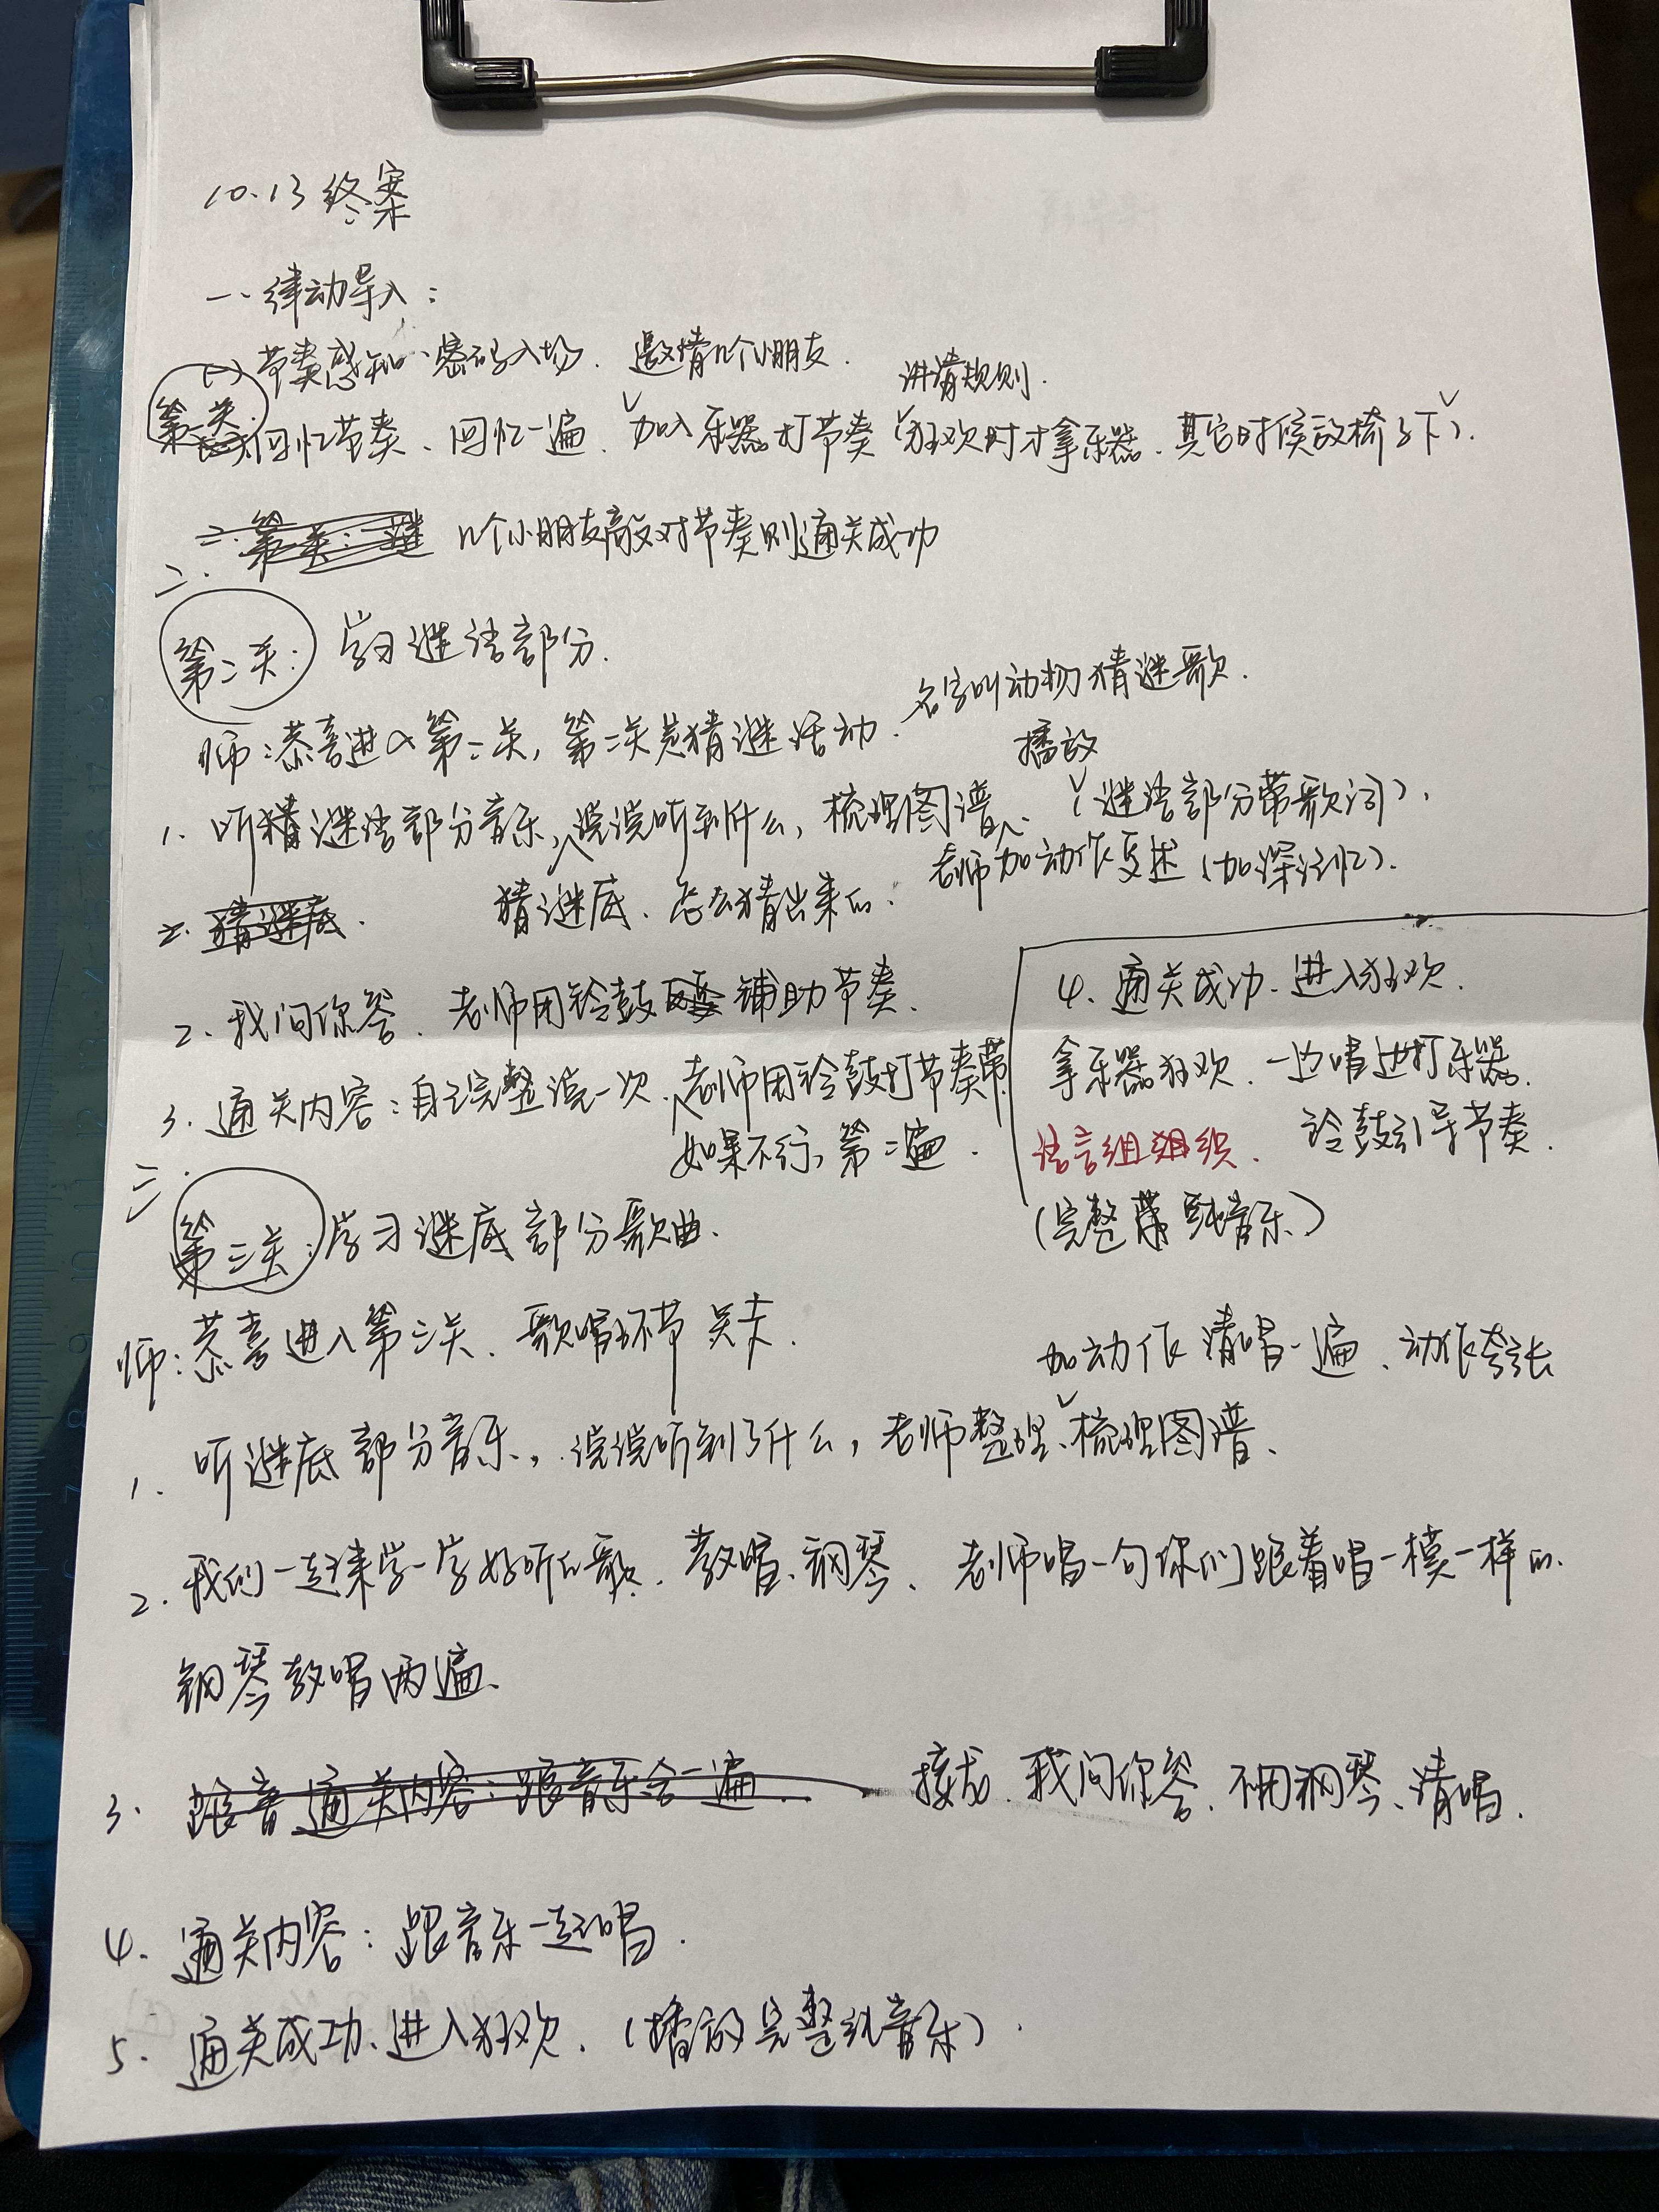 10.13 终案
一、律动导入:
(一) 节奏感知、密码入场. 邀请几个小朋友. 讲清规则.
第一关: 回忆节奏、回忆一遍、加入乐器打节奏(狂欢时才拿乐器. 其它时候放椅子下).
几个小朋友敲对节奏则通关成功
二.
第二关: 学习谜语部分.
名字叫动物猜谜歌.
师:恭喜进入第二关, 第二关是猜谜活动.
播放
1. 听猜谜语部分音乐, 说说听到什么, 梳理图谱. (谜语部分带歌词).
老师加动作复述 (加深记忆).
2. 猜谜底. 猜谜底、怎么猜出来的.
2. 我问你答. 老师用铃鼓 辅助节奏.
3. 通关内容:自己完整说一次. 老师用铃鼓打节奏带.
如果不行, 第二遍.
4. 通关成功. 进入狂欢.
拿乐器狂欢. 一边唱边打乐器.
语言组织. 铃鼓引导节奏.
(完整 纯音乐)
三.
第三关: 学习谜底部分歌曲.
师:恭喜进入第三关. 歌唱环节关卡.
加动作清唱一遍、动作夸张
1. 听谜底部分音乐, 说说听到了什么, 老师整理、梳理图谱、
2. 我们一起来学一学好听的歌. 教唱、钢琴、老师唱一句你们跟着唱一模一样的.
钢琴教唱两遍、
3. 跟音 通关内容:跟音乐合一遍. 接龙. 我问你答. 不用钢琴、清唱.
4. 通关内容:跟音乐一起唱.
5. 通关成功、进入狂欢. (播放完整纯音乐).